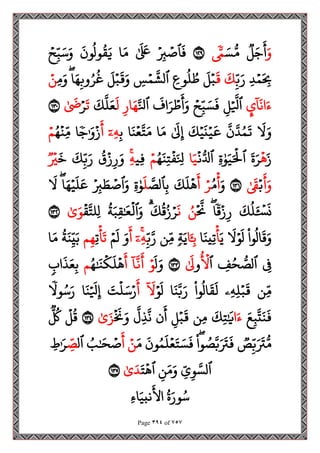 وَأَجَلٌ مُّسَمًّى ١٢٩ فَٱصْبِرْ عَلَىٰ مَا يَقُولُونَ وَسَبِّحْ
بِحَمْدِ رَبِّكَ قَبْلَ طُلُوعِ ٱلشَّمْسِ وَقَبْلَ غُرُوبِهَا ۖ وَمِنْ
ءَانَآئِ ٱلَّيْلِ فَسَبِّحْ وَأَطْرَافَ ٱلنَّهَارِ لَعَلَّكَ تَرْضَىٰ ١٣٠
وَلَا تَمُدَّنَّ عَيْنَيْكَ إِلَىٰ مَا مَتَّعْنَا بِهِۦٓ أَزْوَٰجًا مِّنْهُمْ
زَهْرَةَ ٱلْحَيَوٰةِ ٱلدُّنْيَا لِنَفْتِنَهُمْ فِيهِ ۚ وَرِزْقُ رَبِّكَ خَيْرٌ
وَأَبْقَىٰ ١٣١ وَأْمُرْ أَهْلَكَ بِٱلصَّلَوٰةِ وَٱصْطَبِرْ عَلَيْهَا ۖ لَا
نَسْـَٔلُكَ رِزْقًا ۖ نَّحْنُ نَرْزُقُكَ ۗ وَٱلْعَٰقِبَةُ لِلتَّقْوَىٰ
١٣٢ وَقَالُوا۟ لَوْلَا يَأْتِينَا بِـَٔايَةٍ مِّن رَّبِّهِۦٓ ۚ أَوَلَمْ تَأْتِهِم بَيِّنَةُ مَا
فِى ٱلصُّحُفِ ٱلْأُولَىٰ ١٣٣ وَلَوْ أَنَّآ أَهْلَكْنَٰهُم بِعَذَابٍ
مِّن قَبْلِهِۦ لَقَالُوا۟ رَبَّنَا لَوْلَآ أَرْسَلْتَ إِلَيْنَا رَسُولًا
فَنَتَّبِعَ ءَايَٰتِكَ مِن قَبْلِ أَن نَّذِلَّ وَنَخْزَىٰ ١٣٤ قُلْ كُلٌّ
مُّتَرَبِّصٌ فَتَرَبَّصُوا۟ ۖ فَسَتَعْلَمُونَ مَنْ أَصْحَٰبُ ٱلصِّرَٰطِ
ٱلسَّوِىِّ وَمَنِ ٱهْتَدَىٰ ١٣٥
سُورَةُ الأنبياءِ
Page ٣٩٤ of ٧٥٧